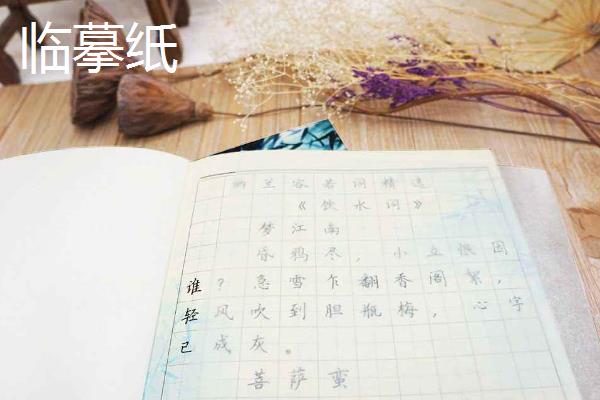 临摹纸
纳兰容若词精选
《饮水词》
梦江南
昏鸦尽，小立恨因
谁？急雪乍翻香阁絮，
轻风吹到胆瓶梅，心字
已成灰。
菩萨蛮